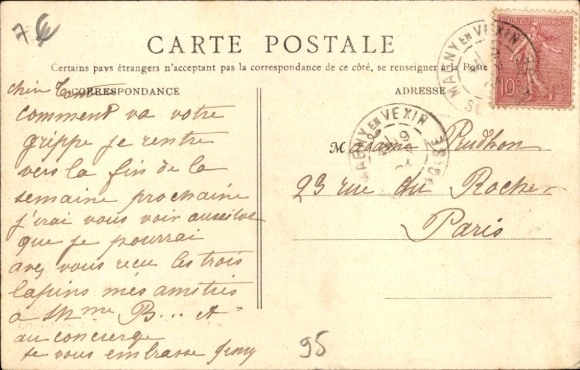 7 €
CARTE POSTALE
Certains pays étrangers n'acceptent pas la correspondance de ce côté, se renseigner à la Poste
CORRESPONDANCE
chère
comment va votre
grippe je rentre
vers la fin de la
semaine prochaine
j'irai vous voir aussitot
que je pourrai
avez vous recu les trois
lapins mes amitiés
à Mme B... A
au concierge
je vous embrasse
ADRESSE
Madame Prudhon
23 rue du Rocher
Paris
MAGNY EN VEXIN
MAGNY EN VEXIN
10
95